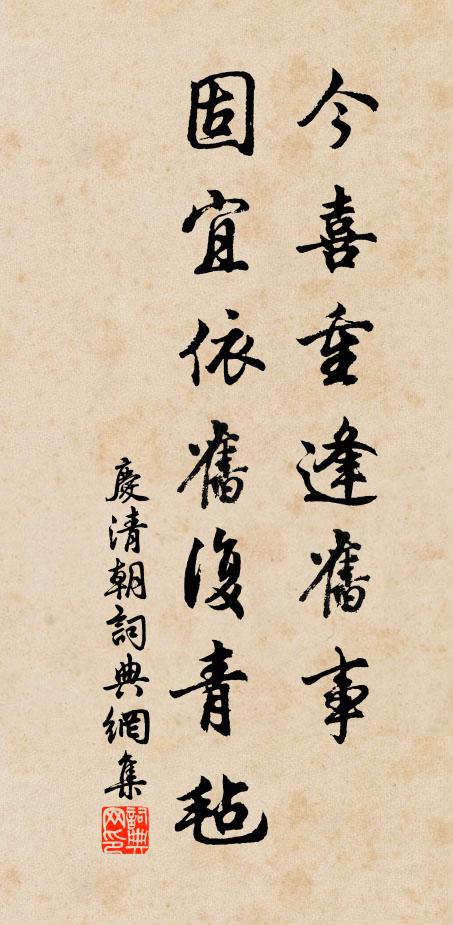 今喜重逢舊事
固宜依舊復青毡
慶清朝詞典網集
詞典网印